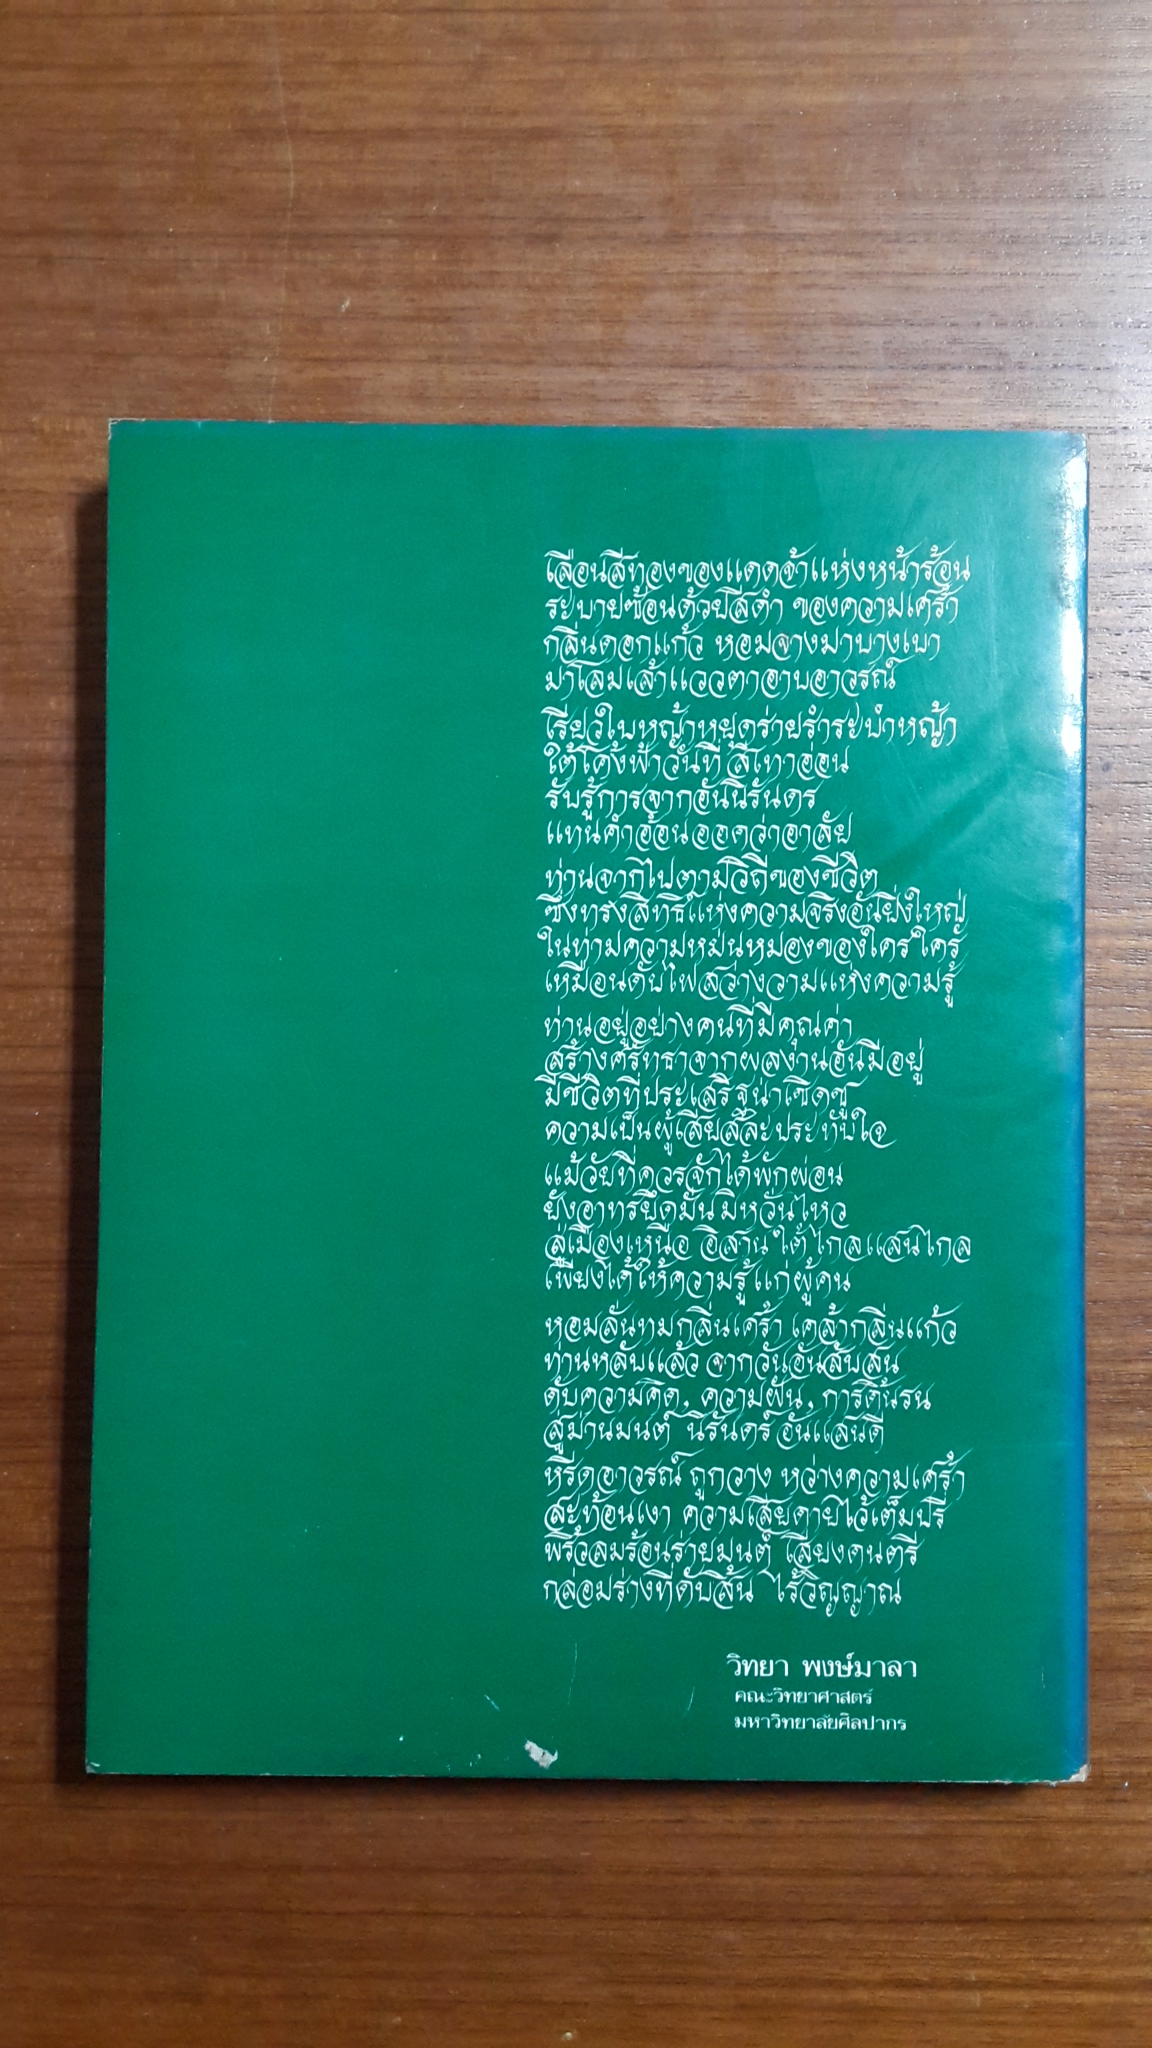 เลือนสีทองของแดดจ้าแห่งหน้าร้อน
ระบายซ้อนด้วยสีดำ ของความเศร้า
กลิ่นดอกแก้ว หอมจางมาบางเบา
มาโลมเล้าแววตาอาบอาวรณ์
เรียวใบหญ้าหยุดร่ายรำระบำหญ้า
ใต้โค้งฟ้าวันที่ สีเทาอ่อน
รับรู้การจากอันนิรันดร
แทนคำอ้อนออดว่าอาลัย
ท่านจากไปตามวิถีของชีวิต
ซึ่งทรงสิทธิ์แห่งความจริงอันยิ่งใหญ่
ในท่ามความหม่นหมองของใครใคร
เหมือนดับไฟสว่างวามแห่งความรู้
ท่านอยู่อย่างคนที่มีคุณค่า
สร้างศรัทธาจากผลงานอันมีอยู่
มีชีวิตที่ประเสริฐน่าเชิดชู
ความเป็นผู้เสียสละประทับใจ
แม้วัยที่ควรจักได้พักผ่อน
ยังอาทรยึดมั่นมิหวั่นไหว
สู่เมืองเหนือ อิสาน ใต้ ไกลแสนไกล
เพียงได้ให้ความรู้ แก่ผู้คน
หอมลั่นทมกลิ่นเศร้า เคล้ากลิ่นแก้ว
ท่านหลับแล้ว จากวันอันสับสน
ดับความคิด, ความฝัน, การดิ้นรน
สู่ม่านมนต์ นิรันดร์ อันแสนดี
หรีดอาวรณ์ ถูกวาง หว่างความเศร้า
สะท้อนเงา ความเสียดายไว้เต็มปรี่
พริ้วลมร้อนร่ายมนต์ เสียงดนตรี
กล่อมร่างที่ดับสิ้น ไร้วิญญาณ
วิทยา พงษ์มาลา
คณะวิทยาศาสตร์
มหาวิทยาลัยศิลปากร